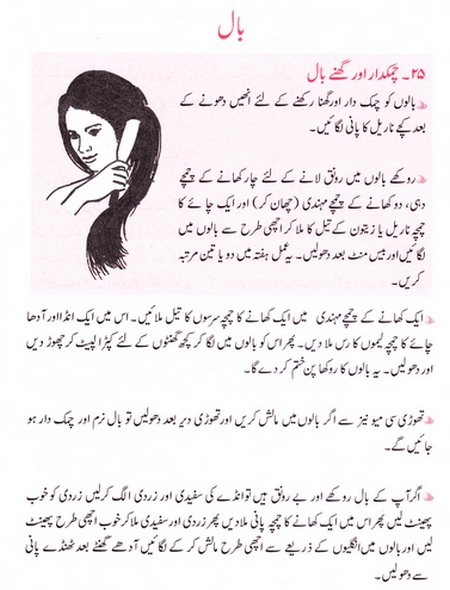 بال
۲۵۔ چمکدار اور گھنے بال
بالوں کو چمک دار اور گھنا رکھنے کے لئے انھیں دھونے کے
بعد کچے ناریل کا پانی لگائیں۔
روکھے بالوں میں رونق لانے کے لئے چار کھانے کے چمچے
دہی، دو کھانے کے چمچے مہندی (چھان کر) اور ایک چائے کا
چمچہ ناریل یا زیتون کے تیل کا ملا کر اچھی طرح سے بالوں میں
لگائیں اور بیس منٹ بعد دھولیں۔ یہ عمل ہفتہ میں دو یا تین مرتبہ
کریں۔
ایک کھانے کے چمچے مہندی میں ایک کھانے کا چمچہ سرسوں کا تیل ملائیں۔ اس میں ایک انڈا اور آدھا
چائے کا چمچہ لیموں کا رس ملا دیں۔ پھر اس کو بالوں میں لگا کر کچھ گھنٹوں کے لئے کپڑا لپیٹ کر چھوڑ دیں
اور دھولیں۔ یہ بالوں کا روکھا پن ختم کر دے گا۔
تھوڑی سی میو نیز سے اگر بالوں میں مالش کریں اور تھوڑی دیر بعد دھولیں تو بال نرم اور چمک دار ہو
جائیں گے۔
اگر آپ کے بال روکھے اور بے رونق ہیں تو انڈے کی سفیدی اور زردی الگ کر لیں زردی کو خوب
پھینٹ لیں پھر اس میں ایک کھانے کا چمچہ پانی ملا دیں پھر زردی اور سفیدی ملا کر خوب اچھی طرح پھینٹ
لیں اور بالوں میں انگلیوں کے ذریعے سے اچھی طرح مالش کر کے لگائیں آدھے گھنٹے بعد ٹھنڈے پانی
سے دھولیں۔